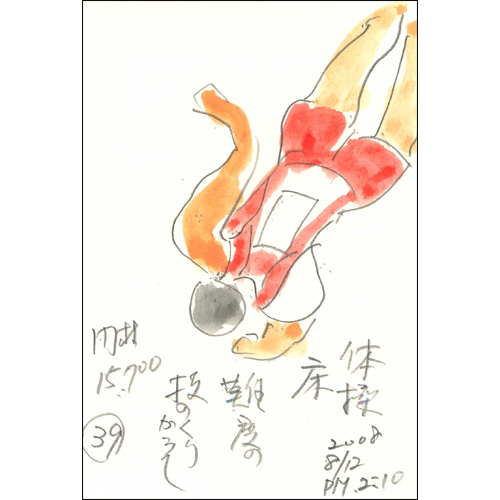 体操
床
難度の
技のくり
かえし
2008
8/12
PM.2:10
内村
15.700
39